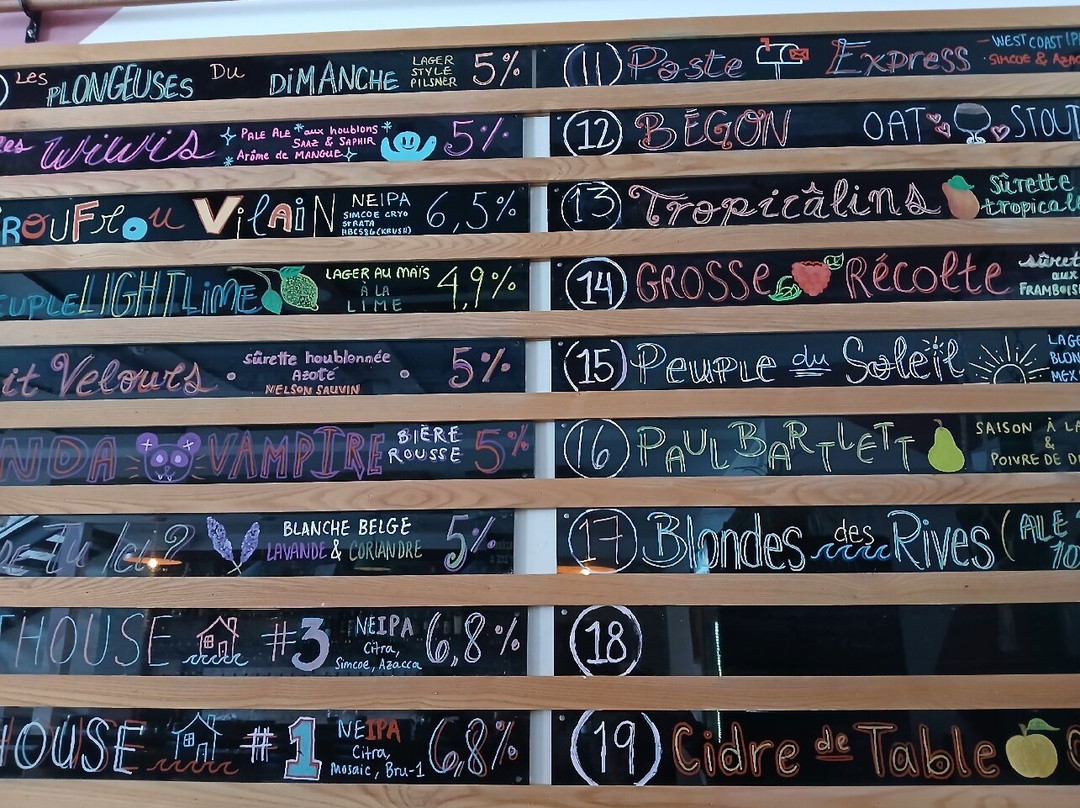 Les PLONGEUSES Du DiMANCHE LAGER STYLE PILSNER 5%
Les wiwis PALE ALE *aux houblons* SAAZ & SAPHIR Arôme de MANGUE 5%
ROUFLOU VILAIN NEIPA SIMCOE CRYO STRATA HBC586 (KRUSH) 6,5%
EUPLE LIGHT LiME LAGER AU MAÏS À LA LIME 4,9%
it Velours • sûrette houblonnée Azoté NELSON SAUVIN • 5%
NDA VAMPIRE BIÈRE ROUSSE 5%
Tu Ici? BLANCHE BELGE LAVANDE & CORIANDRE 5%
THOUSE #3 NEIPA Citra, Simcoe, Azacca 6,8%
HOUSE #1 NEIPA Citra, Mosaic, Bru-1 6,8%
11 Poste Express - WEST COAST IPA SIMCOE & AZAC
12 BÉGON OAT STOUT
13 Tropicâlins sûrette tropicale
14 GROSSE Récolte sûret aux FRAMBOISE
15 Peuple du Soleil LAGE BLON MEX
16 PAUL BARTLETT SAISON À LA & POIVRE DE
17 Blondes des Rives (ALE
18
19 Cidre de Table